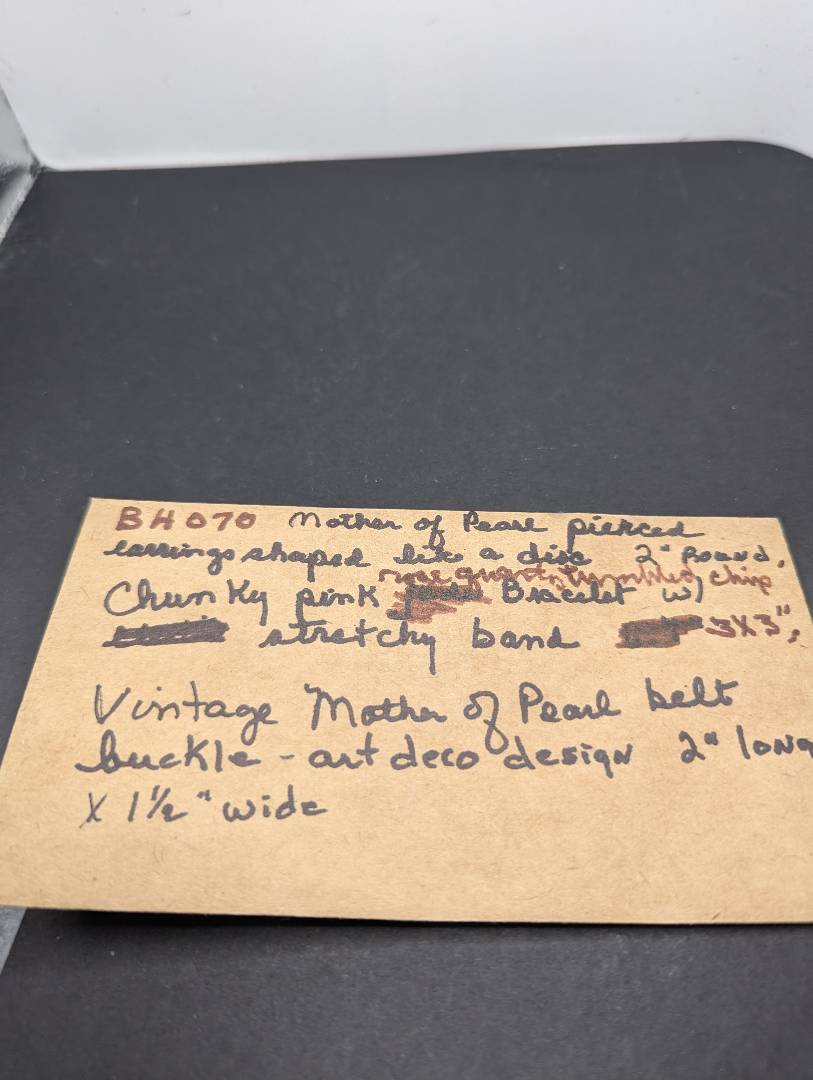 BH070 Mother of Pearl pierced
earrings shaped like a disc 2" Round,
rose quartz tumbled chip
Chunky pink Bracelet w/
stretchy band 3X3",
Vintage Mother of Pearl belt
buckle - art deco design 2" long
X 1½" wide